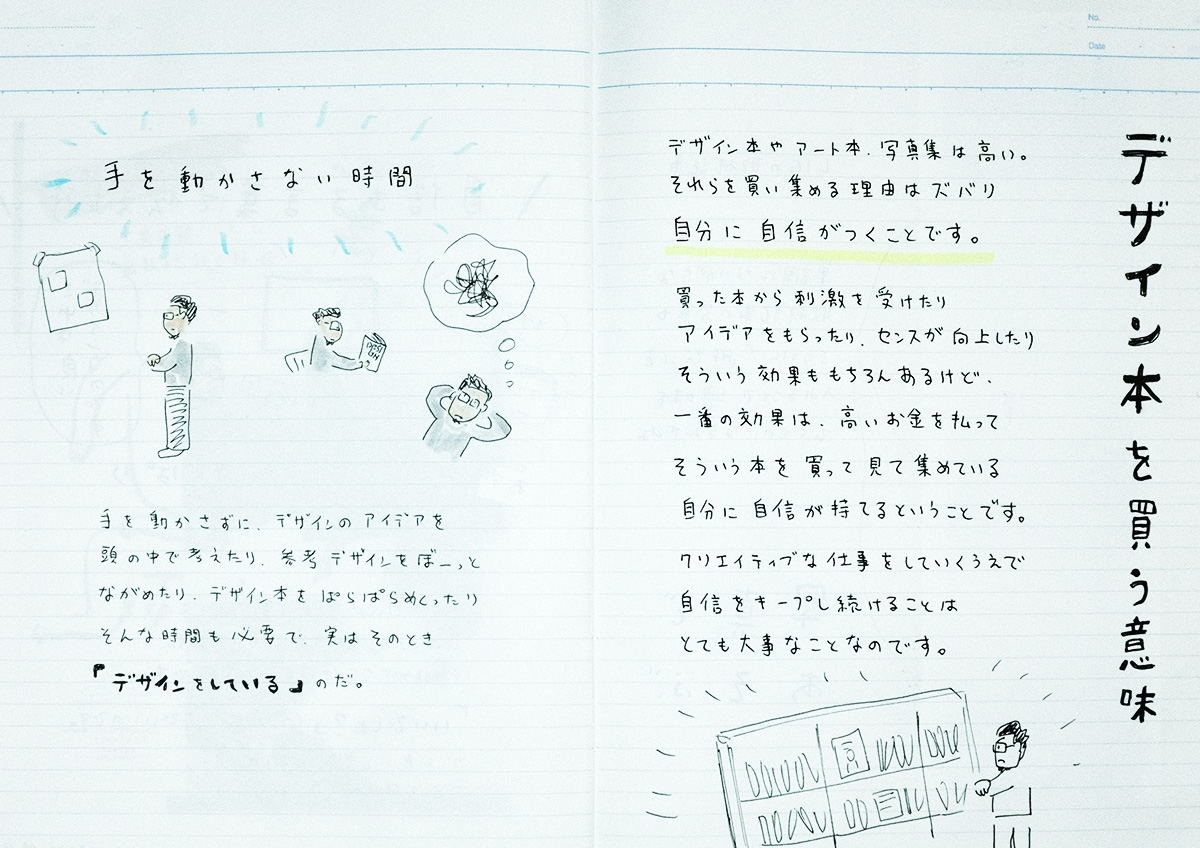 No.
Date
デザイン本を買う意味
デザイン本やアート本、写真集は高い。
それらを買い集める理由はズバリ
自分に自信がつくことです。
買った本から刺激を受けたり
アイデアをもらったり、センスが向上したり
そういう効果ももちろんあるけど、
一番の効果は、高いお金を払って
そういう本を買って見て集めている
自分に自信が持てるということです。
クリエイティブな仕事をしていくうえで
自信をキープし続けることは
とても大事なことなのです。
手を動かさない時間
DESI
GN
手を動かさずに、デザインのアイデアを
頭の中で考えたり、参考デザインをぼーっと
ながめたり、デザイン本をぱらぱらめくったり
そんな時間も必要で、実はそのとき
『デザインをしている』のだ。